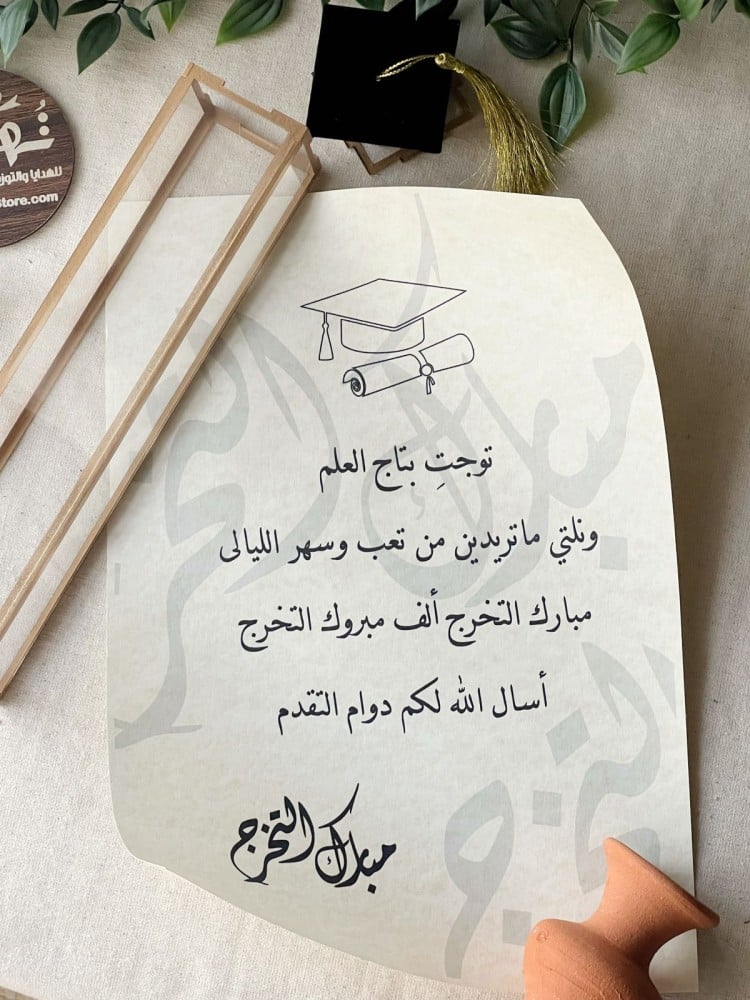 للهدايا والتوزي
Store.com
توجتِ بتاج العلم
ونلتي ماتريدين من تعب وسهر الليالى
مبارك التخرج ألف مبروك التخرج
أسال الله لكم دوام التقدم
مبارك التخرج